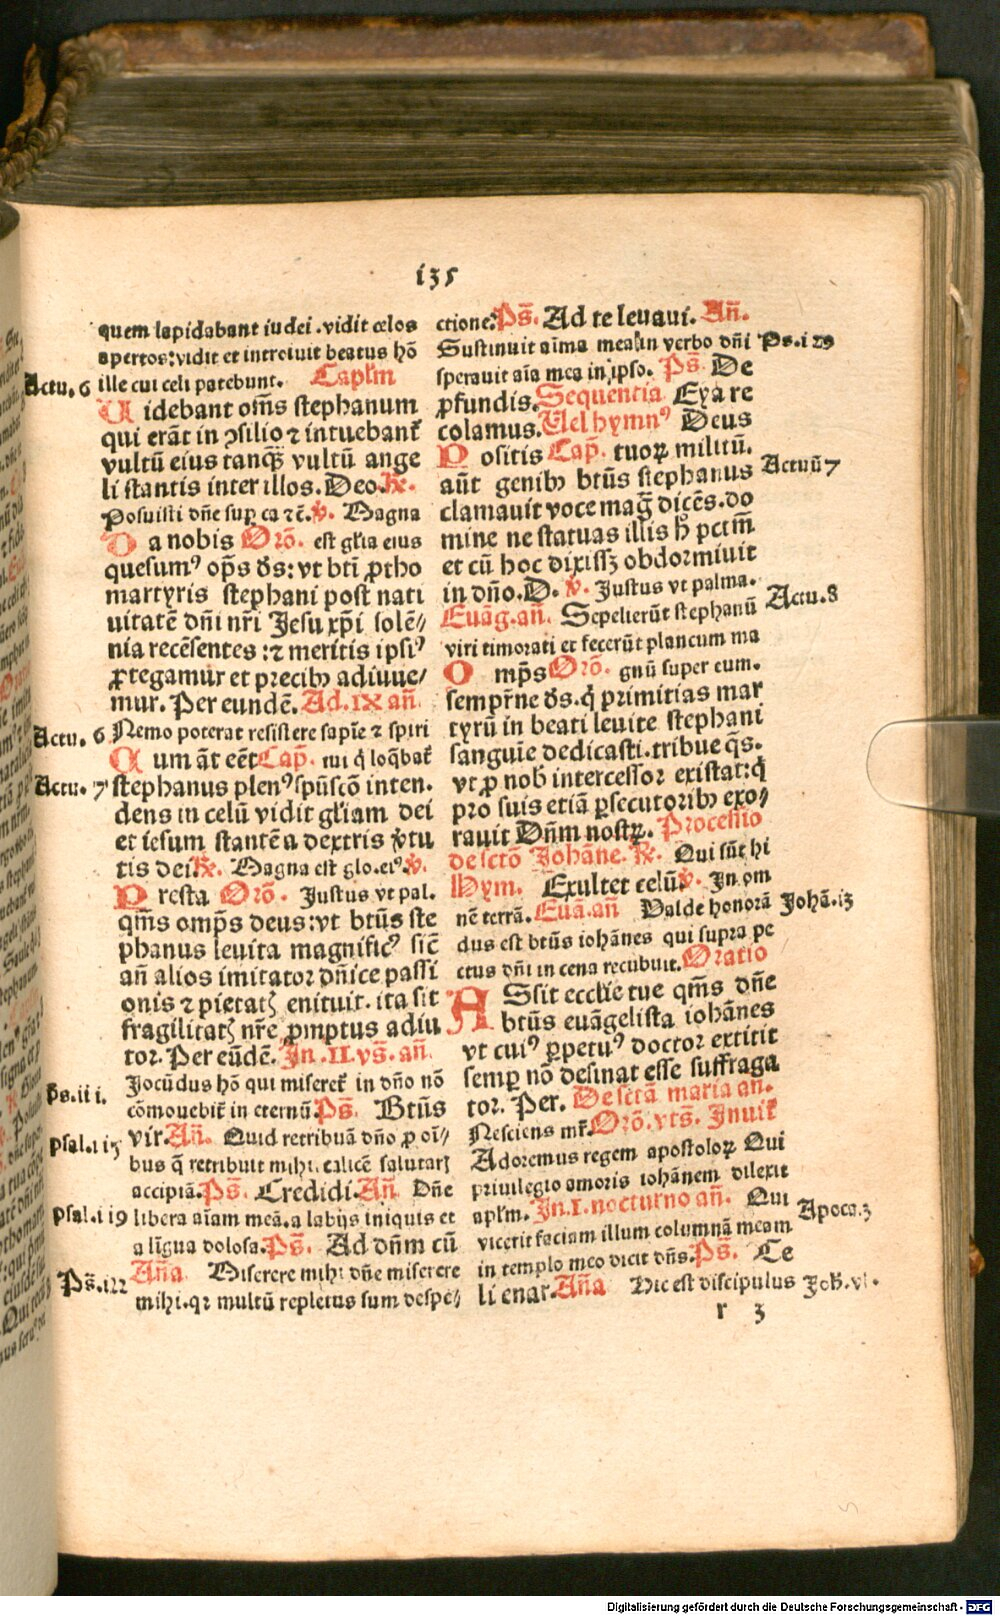 135
quem lapidabant iudei .vidit celos
apertos:vidit et introiuit beatus hō
Actu. 6 ille cui celi patebunt. Capl'm
Uidebant om̄s stephanum
qui erāt in ↄsilio ⁊ intuebant᷑
vultū eius tanqȝ vultū ange
li stantis inter illos. Deo. ℟.
Posuisti dn̄e sup ca ⁊ē. ℣. Magna
Da nobis Orō. est gl'ia eius
quesumꝰ op̄s ds̄: vt bt̄i ꝓtho
martyris stephani post nati
uitatē dn̄i nr̄i Jesu xp̄i solē⸗
nia recēsentes :⁊ meritis ipsiꝰ
ꝓtegamur et precibꝫ adiuue⸗
mur. Per eundē. Ad. IX an̄.
Actu. 6 Nemo poterat resistere sapīe ⁊ spiri
Cum āt eēt Cap̄. tui q̄ loq̄bat᷑
Actu. 7 stephanus plenꝰ spūscō inten.
dens in celū vidit gl'iam dei
et iesum stantē a dextris v̄tu
tis dei ℟. Magna est glo.eiꝰ. ℣.
Presta Orō. Justus vt pal.
qm̄s omp̄s deus: vt bt̄us ste
phanus leuita magnificꝰ sic̄
an̄ alios imitator dn̄ice passi
onis ⁊ pietatꝭ enituit. ita sit
fragilitatꝭ nr̄e ꝓmptus adiu
tor. Per eūdē. In .II. vs̄. an̄.
Ps.iii. Jocūdus hō qui miseret᷑ in dn̄o nō
cōmouebit᷑ in eternū Ps̄. Bt̄us
Psal.115 vir. An̄. Quid retribuā dn̄o ꝓ oī⸗
bus q̄ retribuit mihi. calicē salutarꝭ
accipiā. Ps̄. Credidi. An̄ Dn̄e
Psal.119 libera aīam meā. a labijs iniquis et
a līgua dolosa. Ps̄. Ad dn̄m cū
Ps̄.122 An̄a Miserere mihi dn̄e miserere
mihi. qꝛ multū repletus sum despe⸗
ctione: Ps̄. Ad te leuaui. An̄.
Sustinuit aīma mea in verbo dn̄i Ps.129
sperauit aīa mea in ipso. Ps̄ De
ꝓfundis. Sequentia Eya re
colamus. Uel hymnꝰ Deus
Positis Cap̄. tuoꝝ militū.
aūt genibꝫ bt̄us stephanus Actuū 7
clamauit voce maḡ dicēs. do
mine ne statuas illis h̄ pctm̄
et cū hoc dixissꝫ obdormiuit
in dn̄o. D. ℣. Justus vt palma.
Euāg. an̄. Sepelierūt stephanū Actu. 8
viri timorati et fecerūt planctum ma
Omp̄s Orō. gnū super eum.
sempr̄ne ds̄. q̄ primitias mar
tyrū in beati leuite stephani
sanguīe dedicasti. tribue qs̄.
vt ꝓ nobꝭ intercessor existat: q̄
pro suis etiā ꝑsecutoribꝫ exo⸗
rauit Dn̄m nostꝝ. Processio
de sctō Johāne. ℟. Qui sūt hi
Hym. Exultet celū ℣. In om
nē terrā. Euā. an̄ Valde honorā Johā.13
dus est bt̄us iohānes qui supra pe
ctus dn̄i in cena recubuit. Oratio
Assit eccl'ie tue qm̄s dn̄e
bt̄us euāgelista iohānes
vt cuiꝰ ꝑpetuꝰ doctor extitit
semp nō desinat esse suffraga
tor. Per. De sctā maria an.
Nesciens mr̄. Orō. vts̄. Inuit᷑
Adoremus regem apostoloꝝ Qui
priuilegio amoris iohānem dilexit
apl'm. In. I. nocturno an̄. Qui Apoca.3
vicerit faciam illum columnā meam
in templo meo dicit dn̄s. Ps̄. Ce
li enar. An̄a Hic est discipulus Joh̄. vl.
r 3
Digitalisierung gefördert durch die Deutsche Forschungsgemeinschaft - DFG